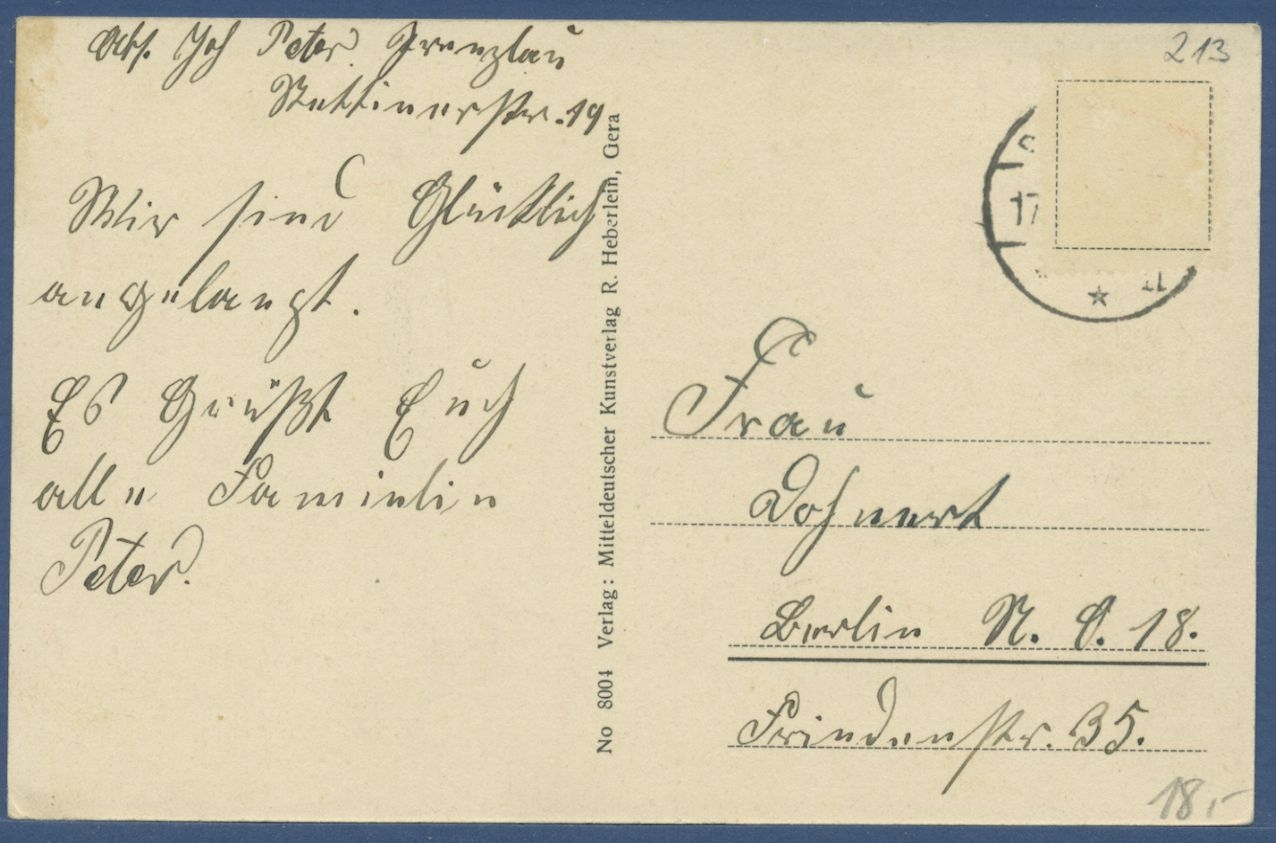 Abs. Joh Peter Prenzlau
Stettinerstr. 19
Wir sind Glücklich
angelangt.
Es Grüßt Euch
alle Familie
Peter.
No 8004 Verlag: Mitteldeutscher Kunstverlag R. Heberlein, Gera
213
17
Frau
Dohnert
Berlin N. O. 18.
Friedenstr. 35.
18,-